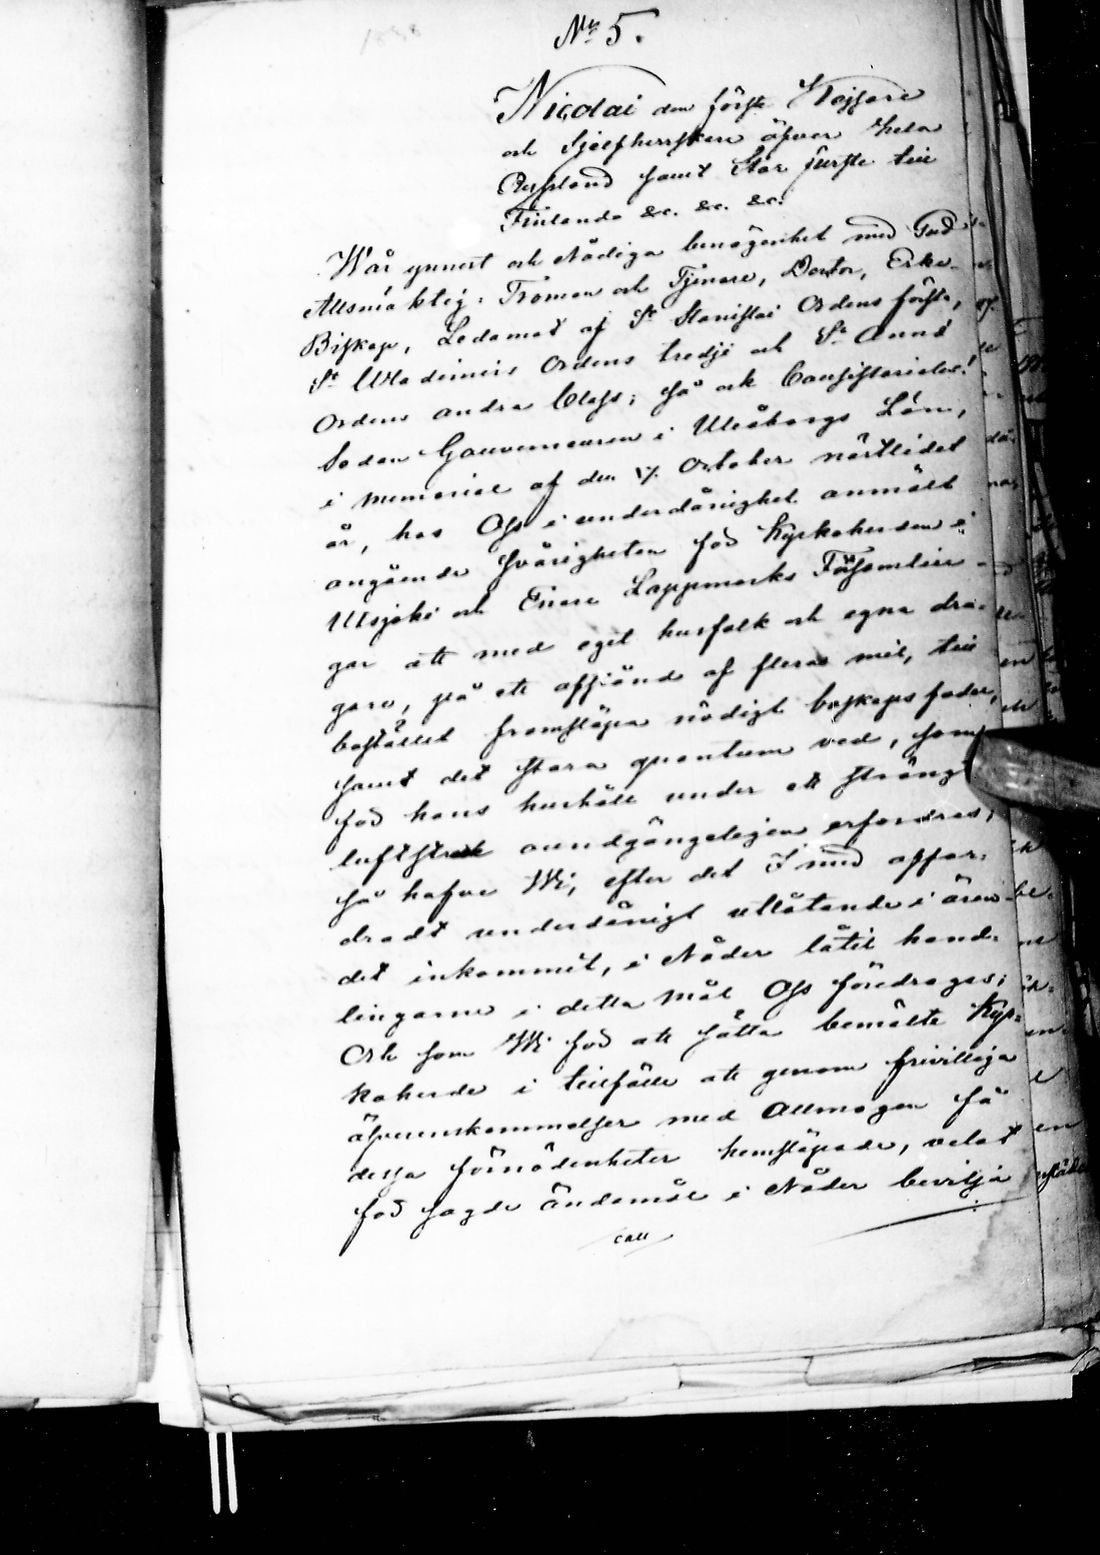 No 5.
Nicolai den förste Kejsare
och Sjelfherrskare öfver hela
Ryssland samt Stor furste till
Finlands &c. &c. &c.
Wår ynnest och Nådiga benägenhet med Gud
Allsmäktig: Troman och Tjenare, Doctor, Erke-
Biskop, Ledamot af St Stanislai Ordens första,
St Wladimirs Ordens tredje och St Annæ
Ordens andra Class; så ock Consistoriales!
Sedan Gouverneuren i Uleåborgs Län,
i memorial af den 17 October nästlidet
år, hos Oss i underdånighet anmält
angående svårigheten för Kyrkoherden i
Utsjoki och Enare Lappmarks Församlin-
gar att med eget husfolk och egna dra-
gare, på ett afstånd af flera mil, till
bostället framsläpa nödigt boskapsfoder,
samt det stora quantum ved, som
för hans hushåll under ett strängt
luftstrek oundgängeligen erfordras;
så hafve Wi, efter det I med affor-
dradt underdånigt utlåtande i ären-
det inkommit, i Nåder låtit hand-
lingarne i detta mål Oss föredragas;
Och som Wi för att sätta bemälte Kyr-
koherde i tillfälle att genom frivilliga
öfverenskommelser med Allmogen få
dessa förnödenheter hemsläpade, velat
för sagde ändamål i Nåder bevilja